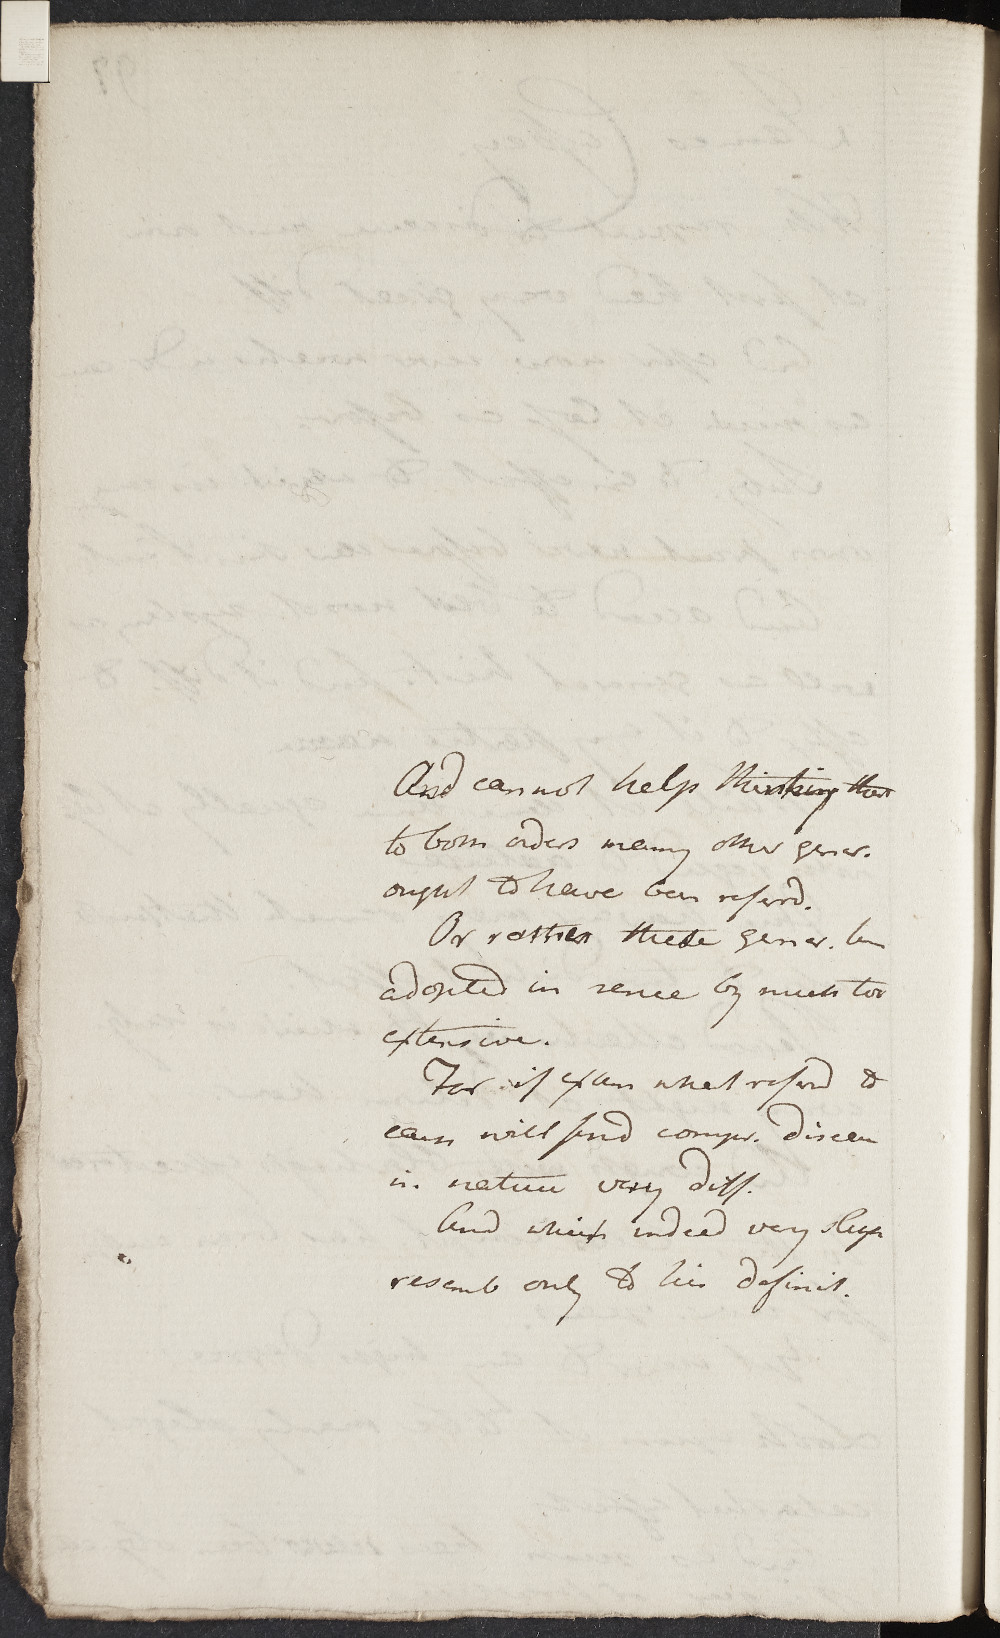 And cannot help thinking that
to both orders many other gener.
ought to have been referrd.
Or rather these gener. be
adopted in sense by much too
extensive.
For if exam what referrd to
each will find compr. diseas
in nature very diff.
And which indeed very
resemb only to his definit.